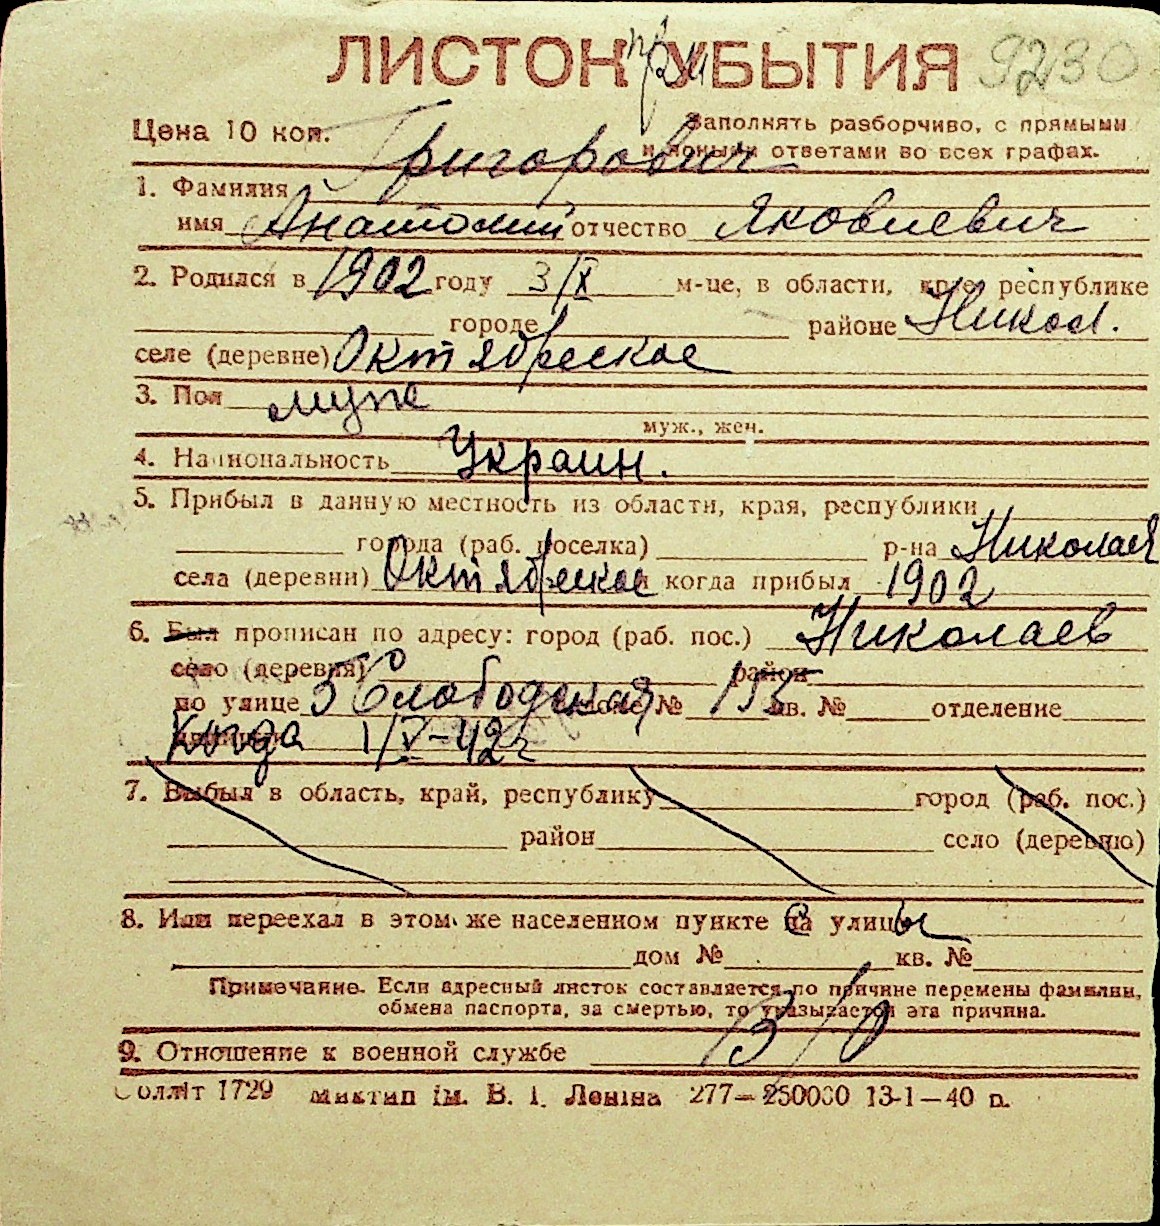 ЛИСТОК УБЫТИЯ 9230
Цена 10 коп. Заполнять разборчиво, с прямыми
и ясными ответами во всех графах.
Григорович
1. Фамилия
имя Анатолий отчество Яковлевич
2. Родился в 1902 году 3/IX м-це, в области, крае, республике
городе районе Никол.
селе (деревне) Октябрьское
3. Пол муж
муж., жен.
4. Национальность Украин.
5. Прибыл в данную местность из области, края, республики
города (раб. поселка) р-на Николаев
села (деревни) Октябрьское и когда прибыл 1902
6. Был прописан по адресу: город (раб. пос.) Николаев
село (деревня) район
по улице 5 Слободская № 155 кв. № отделение
Когда 1/V-42 г
7. Выбыл в область, край, республику город (раб. пос.)
район село (деревню)
8. Или переехал в этом же населенном пункте с улицы
дом № кв. №
Примечание. Если адресный листок составляется по причине перемены фамилии,
обмена паспорта, за смертью, то указывается эта причина.
9. Отношение к военной службе В/О
Облліт 1729 ім. В. І. Леніна 277—250000 13-1—40 р.